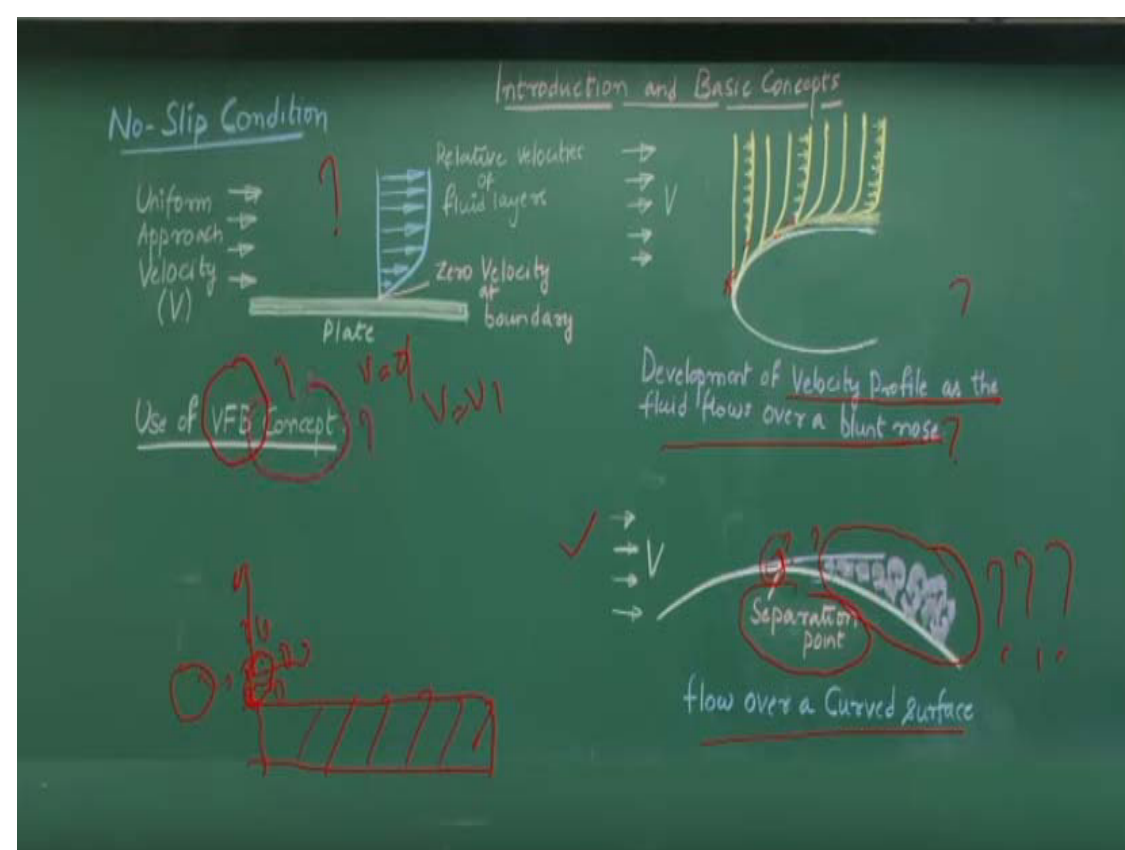 Introduction and Basic Concepts
No-Slip Condition
Uniform
Approach
Velocity
(V)
Relative velocities
of
fluid layers
Zero Velocity
at
boundary
Plate
V
Development of Velocity Profile as the
fluid flows over a blunt nose
?
?
?
Use of VFB Concept
?
?
V
Separation
point
???
flow over a Curved Surface